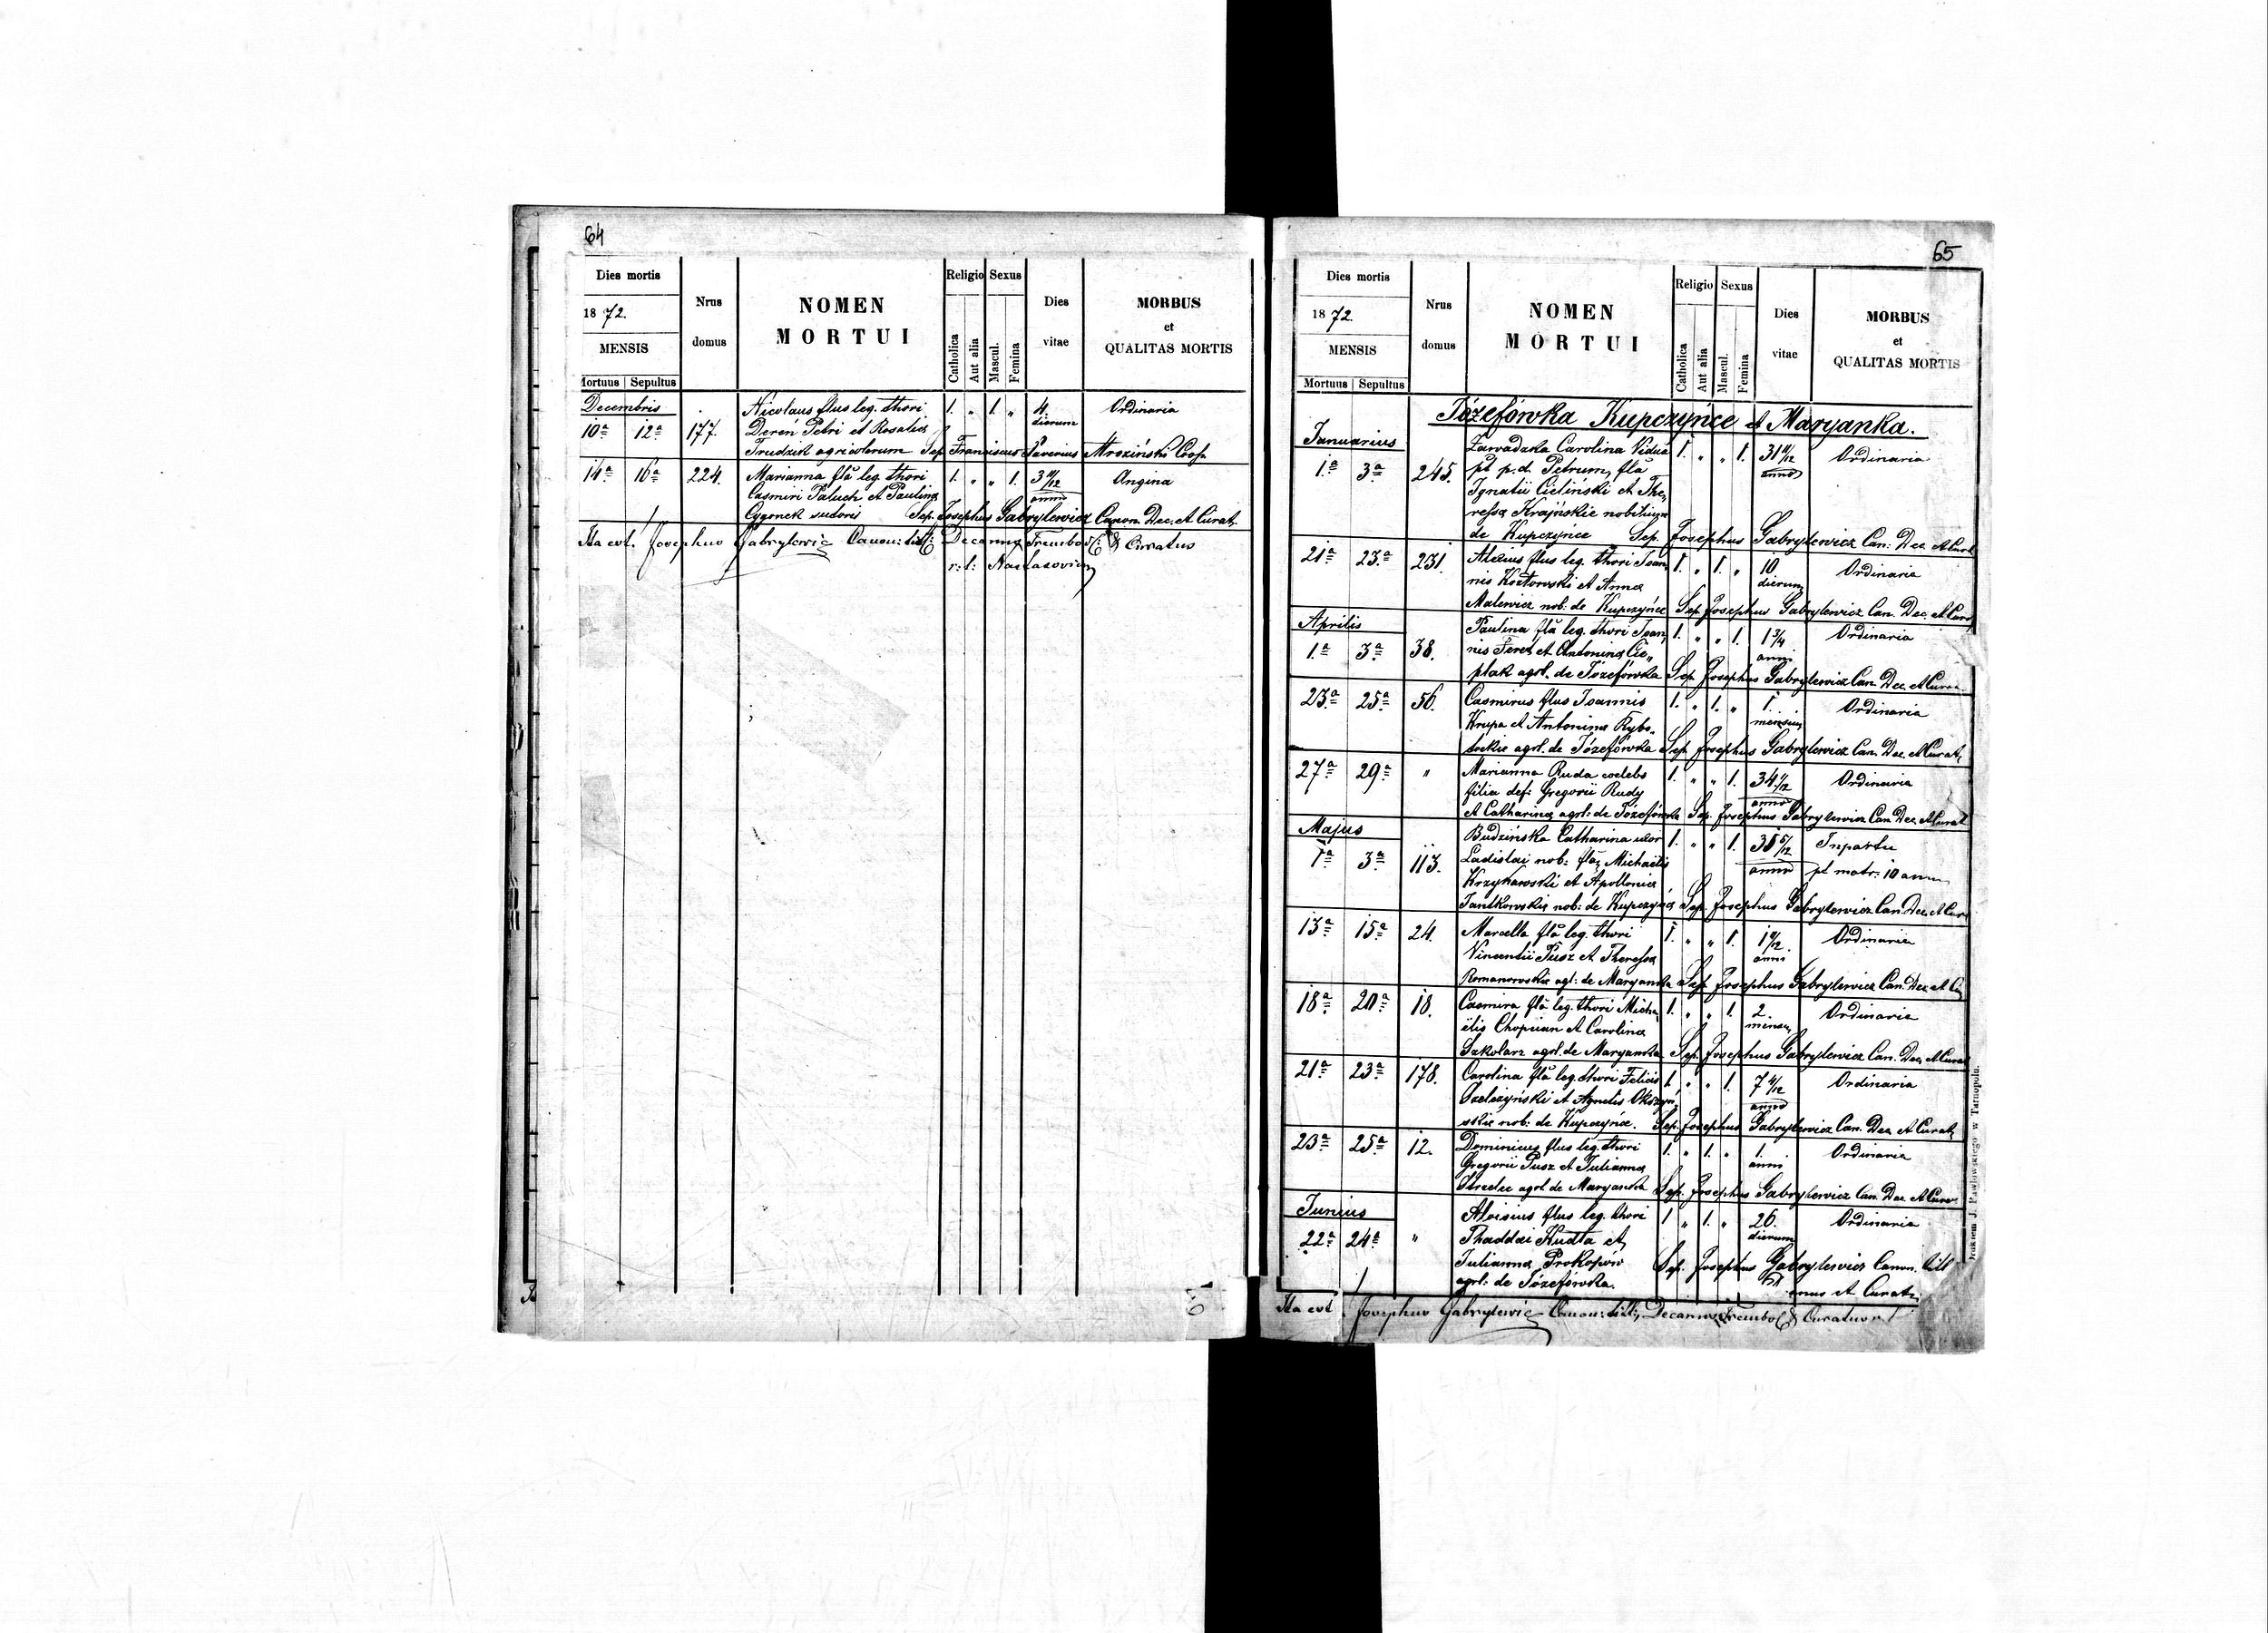 64
Dies mortis
1872.
MENSIS
Mortuus Sepultus
Nrus domus
NOMEN
MORTUI
Religio Sexus
Catholica
Aut alia
Mascul.
Femina
Dies vitae
MORBUS
et
QUALITAS MORTIS
Decembris
10a 12a 177. Nicolaus flus leg. thori 1. " 1. " 4. dierum Ordinaria
Dereń Petri et Rosalia
Trudzik agricolarum Sep. Franciscus Xaverius Mroziński Coop.
14a 16a 224. Marianna fla leg. thori 1. " " 1. anno Angina
Casmiri Paluch et Paulina
Cyganek sutoris Sep. Josephus Gabrylewicz Canon. Dec. et Curat.
Ita est. Josephus Gabrylewicz Canon: Decanus Trembow: & Curatus
65
Dies mortis
1872.
MENSIS
Mortuus Sepultus
Nrus domus
NOMEN
MORTUI
Religio Sexus
Catholica
Aut alia
Mascul.
Femina
Dies vitae
MORBUS
et
QUALITAS MORTIS
Józefówka Kupczyńce et Maryanka.
Januarius
1a 3a 245. Zawadzka Carolina Vidua 1. " " 1. anno Ordinaria
pt p.d. Petrum, fla
Ignatii Cieliński et The,
resa Krajóskie nobilium
de Kupczyńce Sep. Josephus Gabrylewicz Can: Dec. et Curat
21a 23a 231. Alexius flus leg. thori Joan, 1. " 1. " 10 dierum Ordinaria
nis et Anna
Malewicz nob: de Kupczyńce Sep. Josephus Gabrylewicz Can. Dec. et Curat
Aprilis
1a 3a 38. Paulina fla leg. thori Joan, 1. " " 1. 1 3/4 anni Ordinaria
nis Feret et Antonina Cie,,
plak agrl. de Józefówka Sep. Josephus Gabrylewicz Can. Dec. et Curat.
23a 25a 56. Casmirus flus Joannis 1. " 1. " 1. mensium Ordinaria
Krupa et Antonina Rybo,
agrl. de Józefówka Sep. Josephus Gabrylewicz Can. Dec. et Curat.
27a 29a " Marianna Ruda coelebs 1. " " 1. 34 1/12 anno Ordinaria
filia def: Gregorii Rudy
et Catharina agrl: de Józefówka Sep. Josephus Gabrylewicz Can. Dec. et Curat
Majus
1a 3a 113. Budzińska Catharina uxor 1. " " 1. 35 5/12 anno In partu
Ladislai nob: fla, Michaëlis pt matr: 10 annum
Krzykawski et Apollonia
Jantkowskie nob: de Kupczyńce Sep. Josephus Gabrylewicz Can. Dec. et Cur
13a 15a 24. Marcella fla leg. thori 1. " " 1. anni Ordinaria
Vincentii Pusz et Theresa
Romanowskie agl: de Maryanka Sep. Josephus Gabrylewicz Can. Dec. et Cu
18a 20a 18. Casmira fla leg. thori Micha, 1. " " 1. 2. mensium Ordinaria
ëlis Chopcian et Carolina
Szkolarz agrl. de Maryanka Sep. Josephus Gabrylewicz Can. Dec. et Curat
21a 23a 178. Carolina fla leg. thori Felicis 1. " " 1. anno Ordinaria
et Agnetis
skie nob: de Kupczyńce. Sep. Josephus Gabrylewicz Can. Dec. et Curat.
23a 25a 12. Dominicus flus leg. thori 1. " 1. " 1. anni Ordinaria
Gregorii Pusz et Julianna
agrl de Maryanka Sep. Josephus Gabrylewicz Can. Dec. et Curat
Junius
22a 24a " Aloisius flus leg. thori 1 " 1. " 26. dierum Ordinaria
Thaddai Kudła et
Julianna Prokopów Sep. Josephus Gabrylewicz Canon. titl
agrl: de Józefówka. anus et Curat.
Ita est Josephus Gabrylewicz Canon: titl: Decanus Trembow & Curatus
Drukiem J. Pawłowskiego w Tarnopolu.